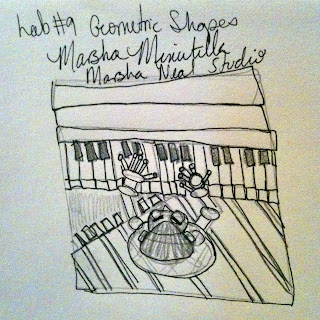 Lab#9 Geometric Shapes
Marsha Minutella
Marsha Neal Studio